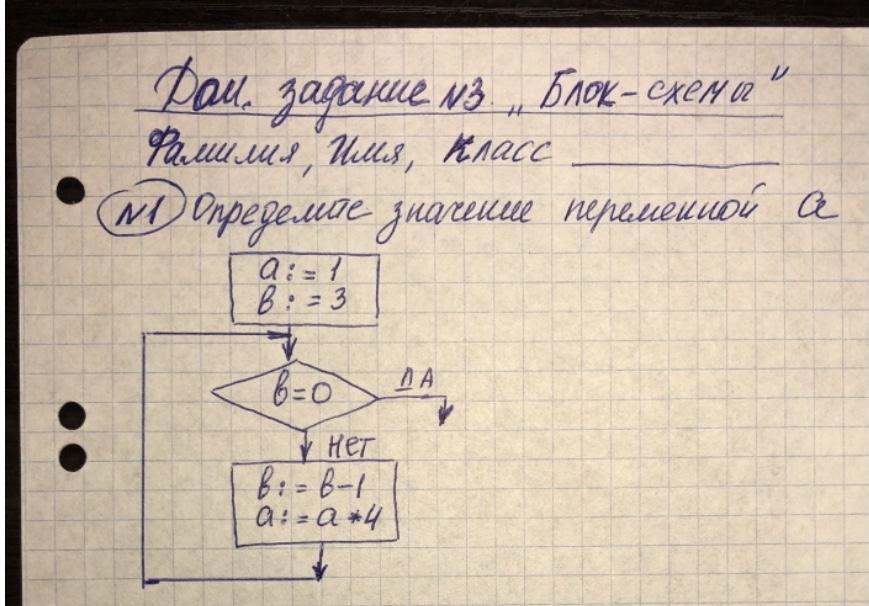 Дом. задание №3 „Блок-схемы"
Фамилия, Имя, Класс
№1 Определите значение переменной а
a:=1
в:=3
в=0
ДА
НЕТ
в:=в-1
a:=a*4